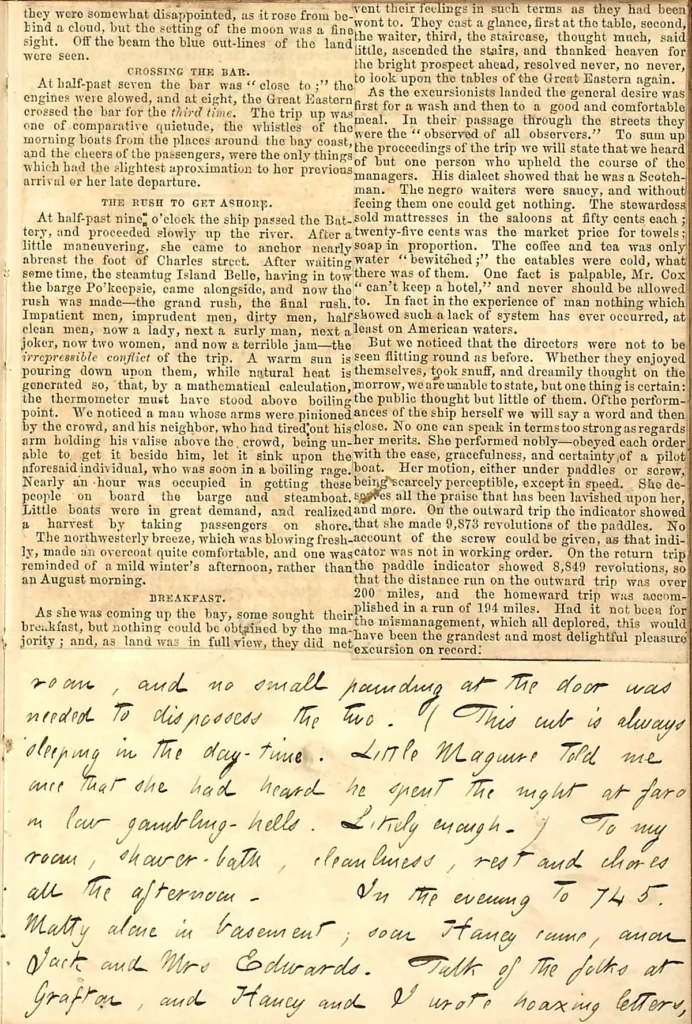 they were somewhat disappointed, as it rose from be-
hind a cloud, but the setting of the moon was a fine
sight. Off the beam the blue out-lines of the land
were seen.
CROSSING THE BAR.
At half-past seven the bar was "close to;" the
engines were slowed, and at eight, the Great Eastern
crossed the bar for the third time. The trip up was
one of comparative quietude, the whistles of the
morning boats from the places around the bay coast,
and the cheers of the passengers, were the only things
which had the slightest aproximation to her previous
arrival or her late departure.
THE RUSH TO GET ASHORE.
At half-past nine o'clock the ship passed the Bat-
tery, and proceeded slowly up the river. After a
little maneuvering, she came to anchor nearly
abreast the foot of Charles street. After waiting
some time, the steamtug Island Belle, having in tow
the barge Po'keepsie, came alongside, and now the
rush was made—the grand rush, the final rush.
Impatient men, imprudent men, dirty men, half
clean men, now a lady, next a surly man, next a
joker, now two women, and now a terrible jam—the
irrepressible conflict of the trip. A warm sun is
pouring down upon them, while natural heat is
generated so, that, by a mathematical calculation,
the thermometer must have stood above boiling
point. We noticed a man whose arms were pinioned
by the crowd, and his neighbor, who had tired out his
arm holding his valise above the crowd, being un-
able to get it beside him, let it sink upon the
aforesaid individual, who was soon in a boiling rage.
Nearly an hour was occupied in getting these
people on board the barge and steamboat.
Little boats were in great demand, and realized
a harvest by taking passengers on shore.
The northwesterly breeze, which was blowing fresh-
ly, made an overcoat quite comfortable, and one was
reminded of a mild winter's afternoon, rather than
an August morning.
BREAKFAST.
As she was coming up the bay, some sought their
breakfast, but nothing could be obtained by the ma-
jority; and, as land was in full view, they did not
vent their feelings in such terms as they had been
wont to. They cast a glance, first at the table, second,
the waiter, third, the staircase, thought much, said
little, ascended the stairs, and thanked heaven for
the bright prospect ahead, resolved never, no never,
to look upon the tables of the Great Eastern again.
As the excursionists landed the general desire was
first for a wash and then to a good and comfortable
meal. In their passage through the streets they
were the "observed of all observers." To sum up
the proceedings of the trip we will state that we heard
of but one person who upheld the course of the
managers. His dialect showed that he was a Scotch-
man. The negro waiters were saucy, and without
feeing them one could get nothing. The stewardess
sold mattresses in the saloons at fifty cents each;
twenty-five cents was the market price for towels;
soap in proportion. The coffee and tea was only
water "bewitched;" the eatables were cold, what
there was of them. One fact is palpable, Mr. Cox
"can't keep a hotel," and never should be allowed
to. In fact in the experience of man nothing which
showed such a lack of system has ever occurred, at
least on American waters.
But we noticed that the directors were not to be
seen flitting round as before. Whether they enjoyed
themselves, took snuff, and dreamily thought on the
morrow, we are unable to state, but one thing is certain:
the public thought but little of them. Of the perform-
ances of the ship herself we will say a word and then
close. No one can speak in terms too strong as regards
her merits. She performed nobly—obeyed each order
with the ease, gracefulness, and certainty of a pilot
boat. Her motion, either under paddles or screw,
being scarcely perceptible, except in speed. She de-
serves all the praise that has been lavished upon her,
and more. On the outward trip the indicator showed
that she made 9,873 revolutions of the paddles. No
account of the screw could be given, as that indi-
cator was not in working order. On the return trip
the paddle indicator showed 8,849 revolutions, so
that the distance run on the outward trip was over
200 miles, and the homeward trip was accom-
plished in a run of 194 miles. Had it not been for
the mismanagement, which all deplored, this would
have been the grandest and most delightful pleasure
excursion on record.
room, and no small pounding at the door was
needed to dispossess the two. (This cub is always
sleeping in the day-time. Little Maguire told me
once that she had heard he spent the night at faro
in low gambling-hells. Likely enough.) To my
room, shower-bath, cleanliness, rest and chores
all the afternoon. In the evening to 745.
Matty alone in basement; soon Haney came, anon
Jack and Mrs Edwards. Talk of the folks at
Grafton, and Haney and I wrote hoaxing letters,